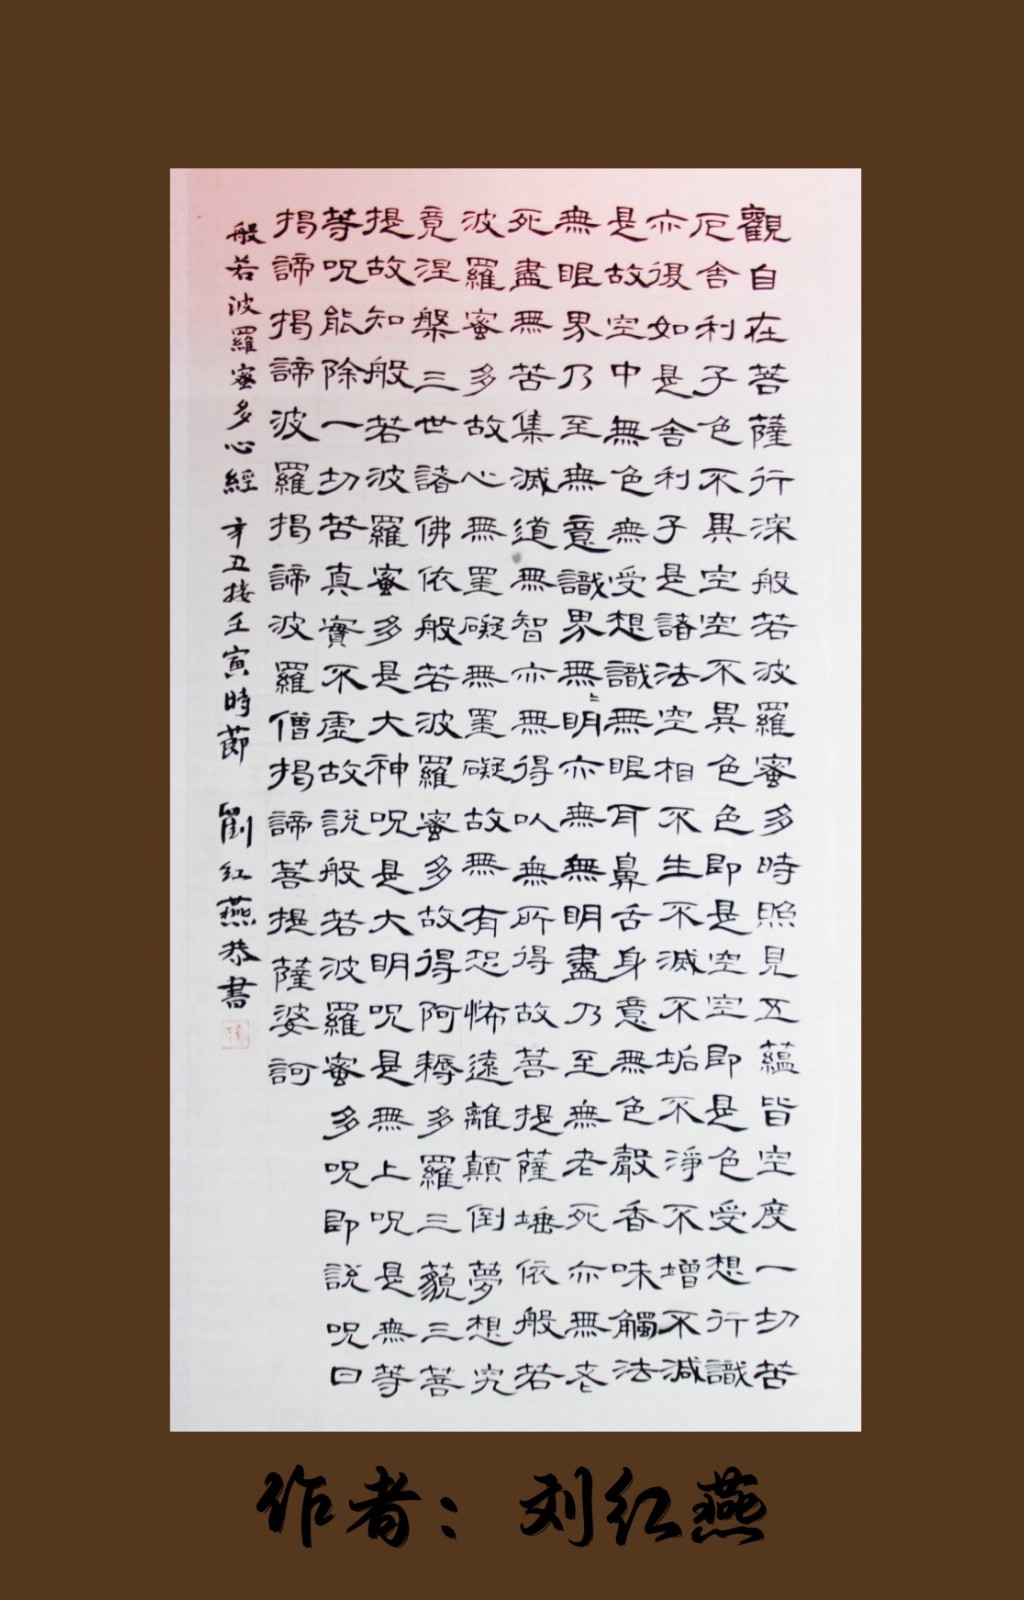 觀自在菩薩行深般若波羅蜜多時照見五蘊皆空度一切苦
厄舍利子色不異空空不異色色即是空空即是色受想行識
亦復如是舍利子是諸法空相不生不滅不垢不淨不增不減
是故空中無色無受想識無眼耳鼻舌身意無色聲香味觸法
無眼界乃至無意識界無〻明亦無無明盡乃至無老死亦無老
死盡無苦集滅道無智亦無得以無所得故菩提薩埵依般若
波羅蜜多故心無罣礙無罣礙故無有恐怖遠離顛倒夢想究
竟涅槃三世諸佛依般若波羅蜜多故得阿耨多羅三藐三菩
提故知般若波羅蜜多是大神呪是大明呪是無上呪是無等
等呪能除一切苦真實不虛故說般若波羅蜜多呪即說呪曰
揭諦揭諦波羅揭諦波羅僧揭諦菩提薩婆訶
般若波羅蜜多心經 辛丑接壬寅時節 劉紅燕恭書
作者：刘红燕